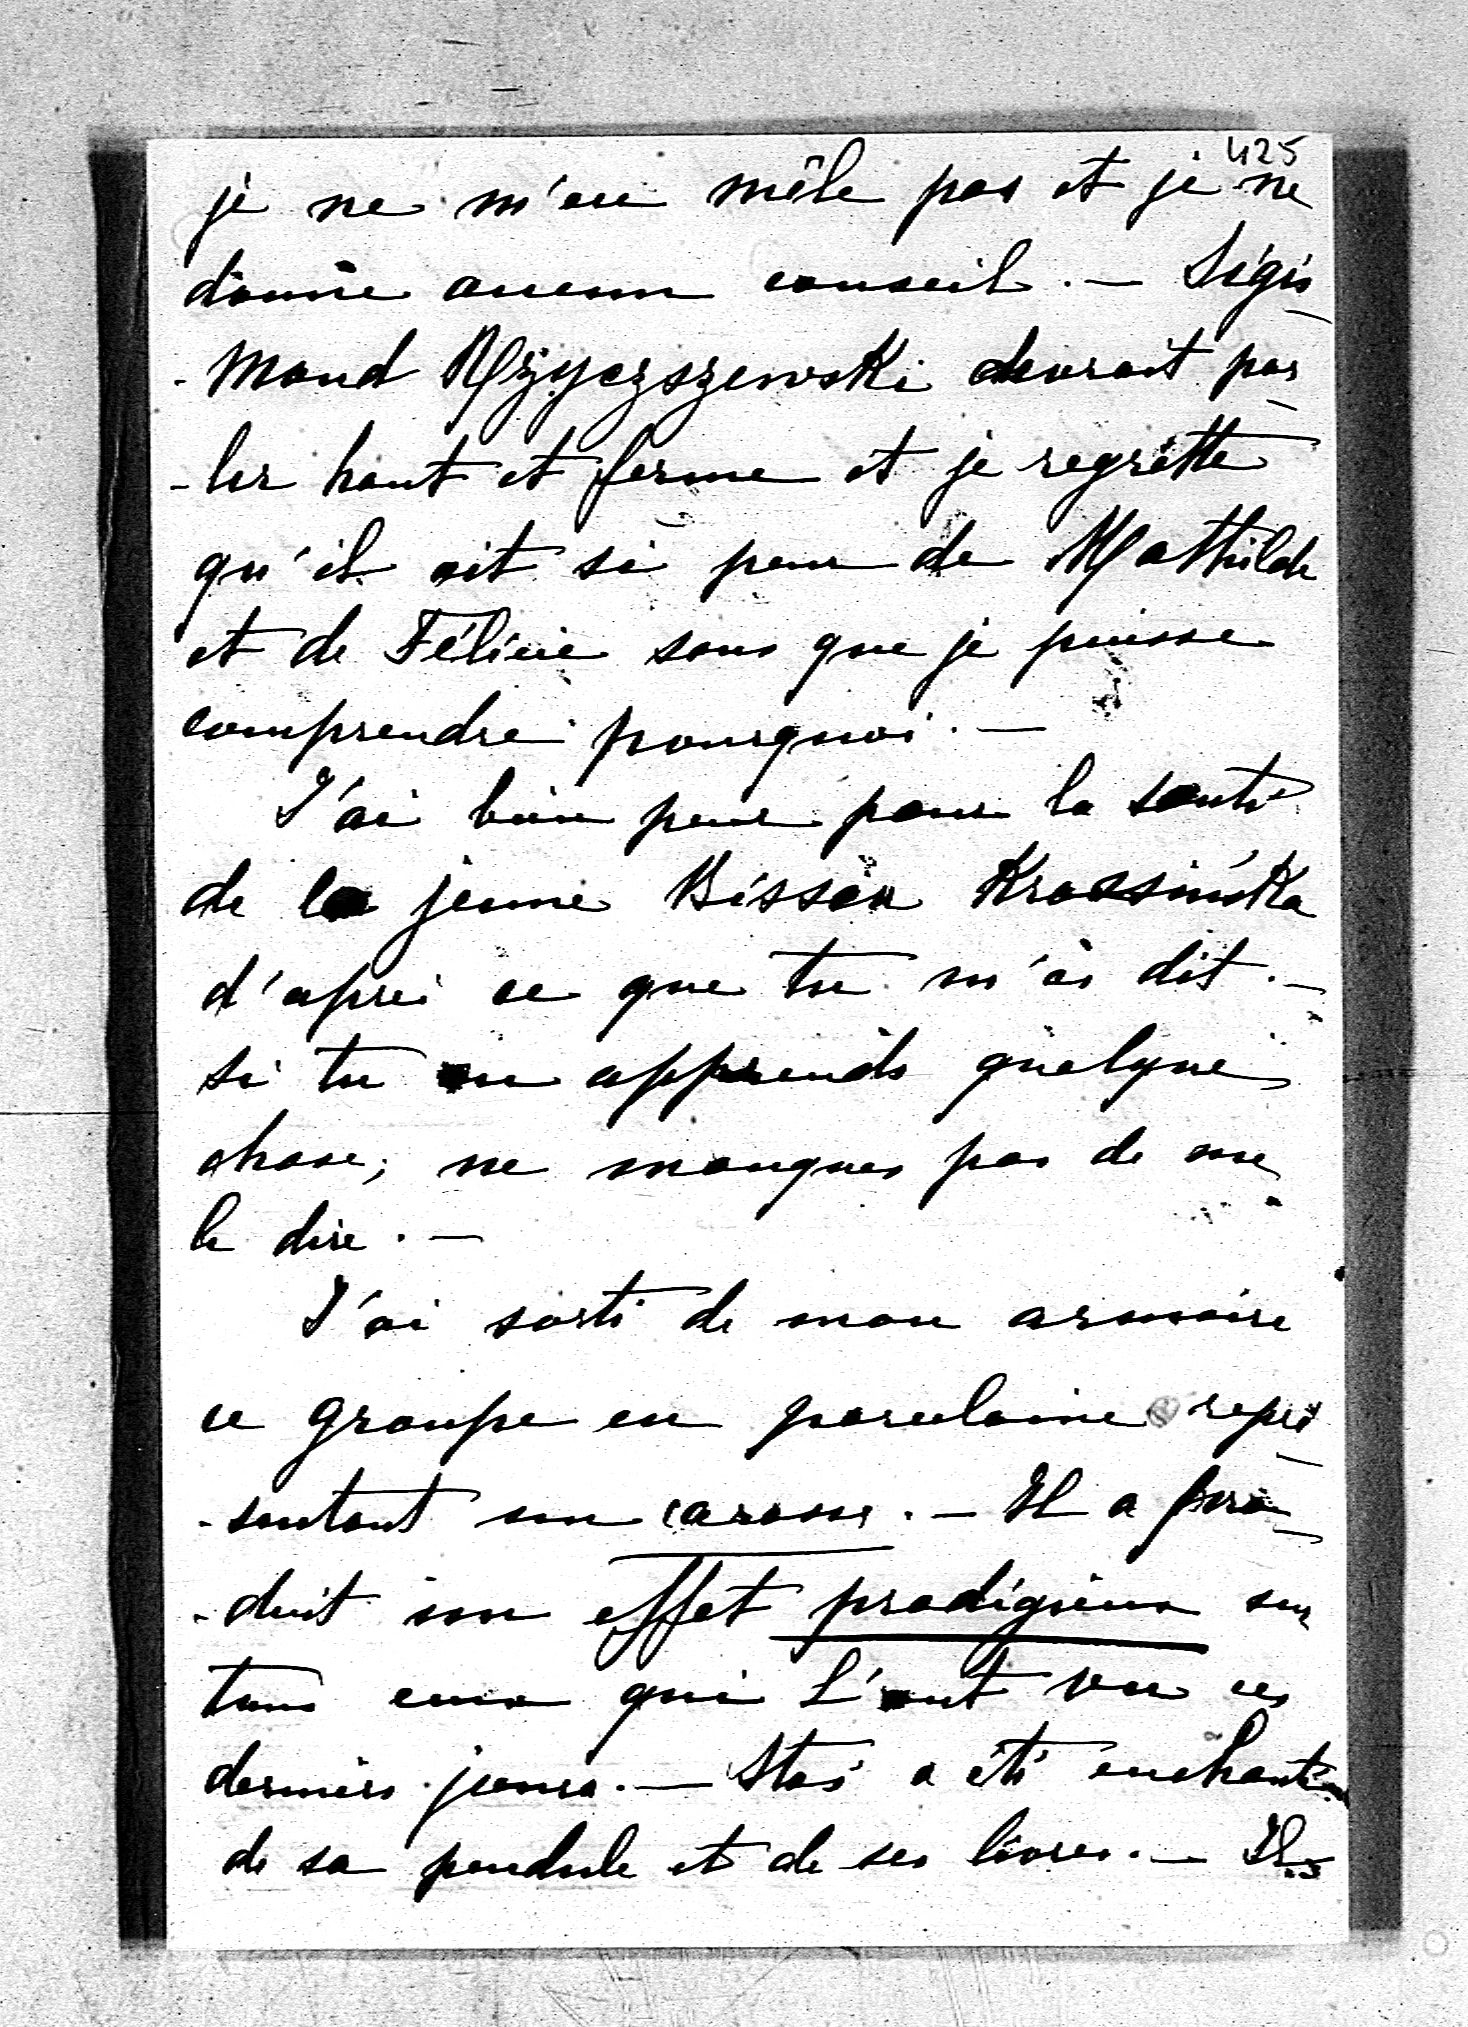 425
je ne m'en mêle pas et je ne
donne aucun conseil. — Sigis
- mond devrait par
- ler haut et ferme et je regrette
qu'il ait si peur de Mathilde
et de Félicie sans que je puisse
comprendre pourquoi. —
J'ai bien peur pour la santé
de la jeune Krasińska
d'après ce que tu m'as dit. —
si tu en apprends quelque
chose, ne manques pas de me
le dire. —
J'ai sorti de mon armoire
ce groupe en porcelaine repré
- sentant un carosse. — Il a pro
- duit son effet prodigieux sur
tous ceux qui l'ont vu ces
derniers jours. — Staś a été enchanté
de sa pendule et de ses livres. — Ils